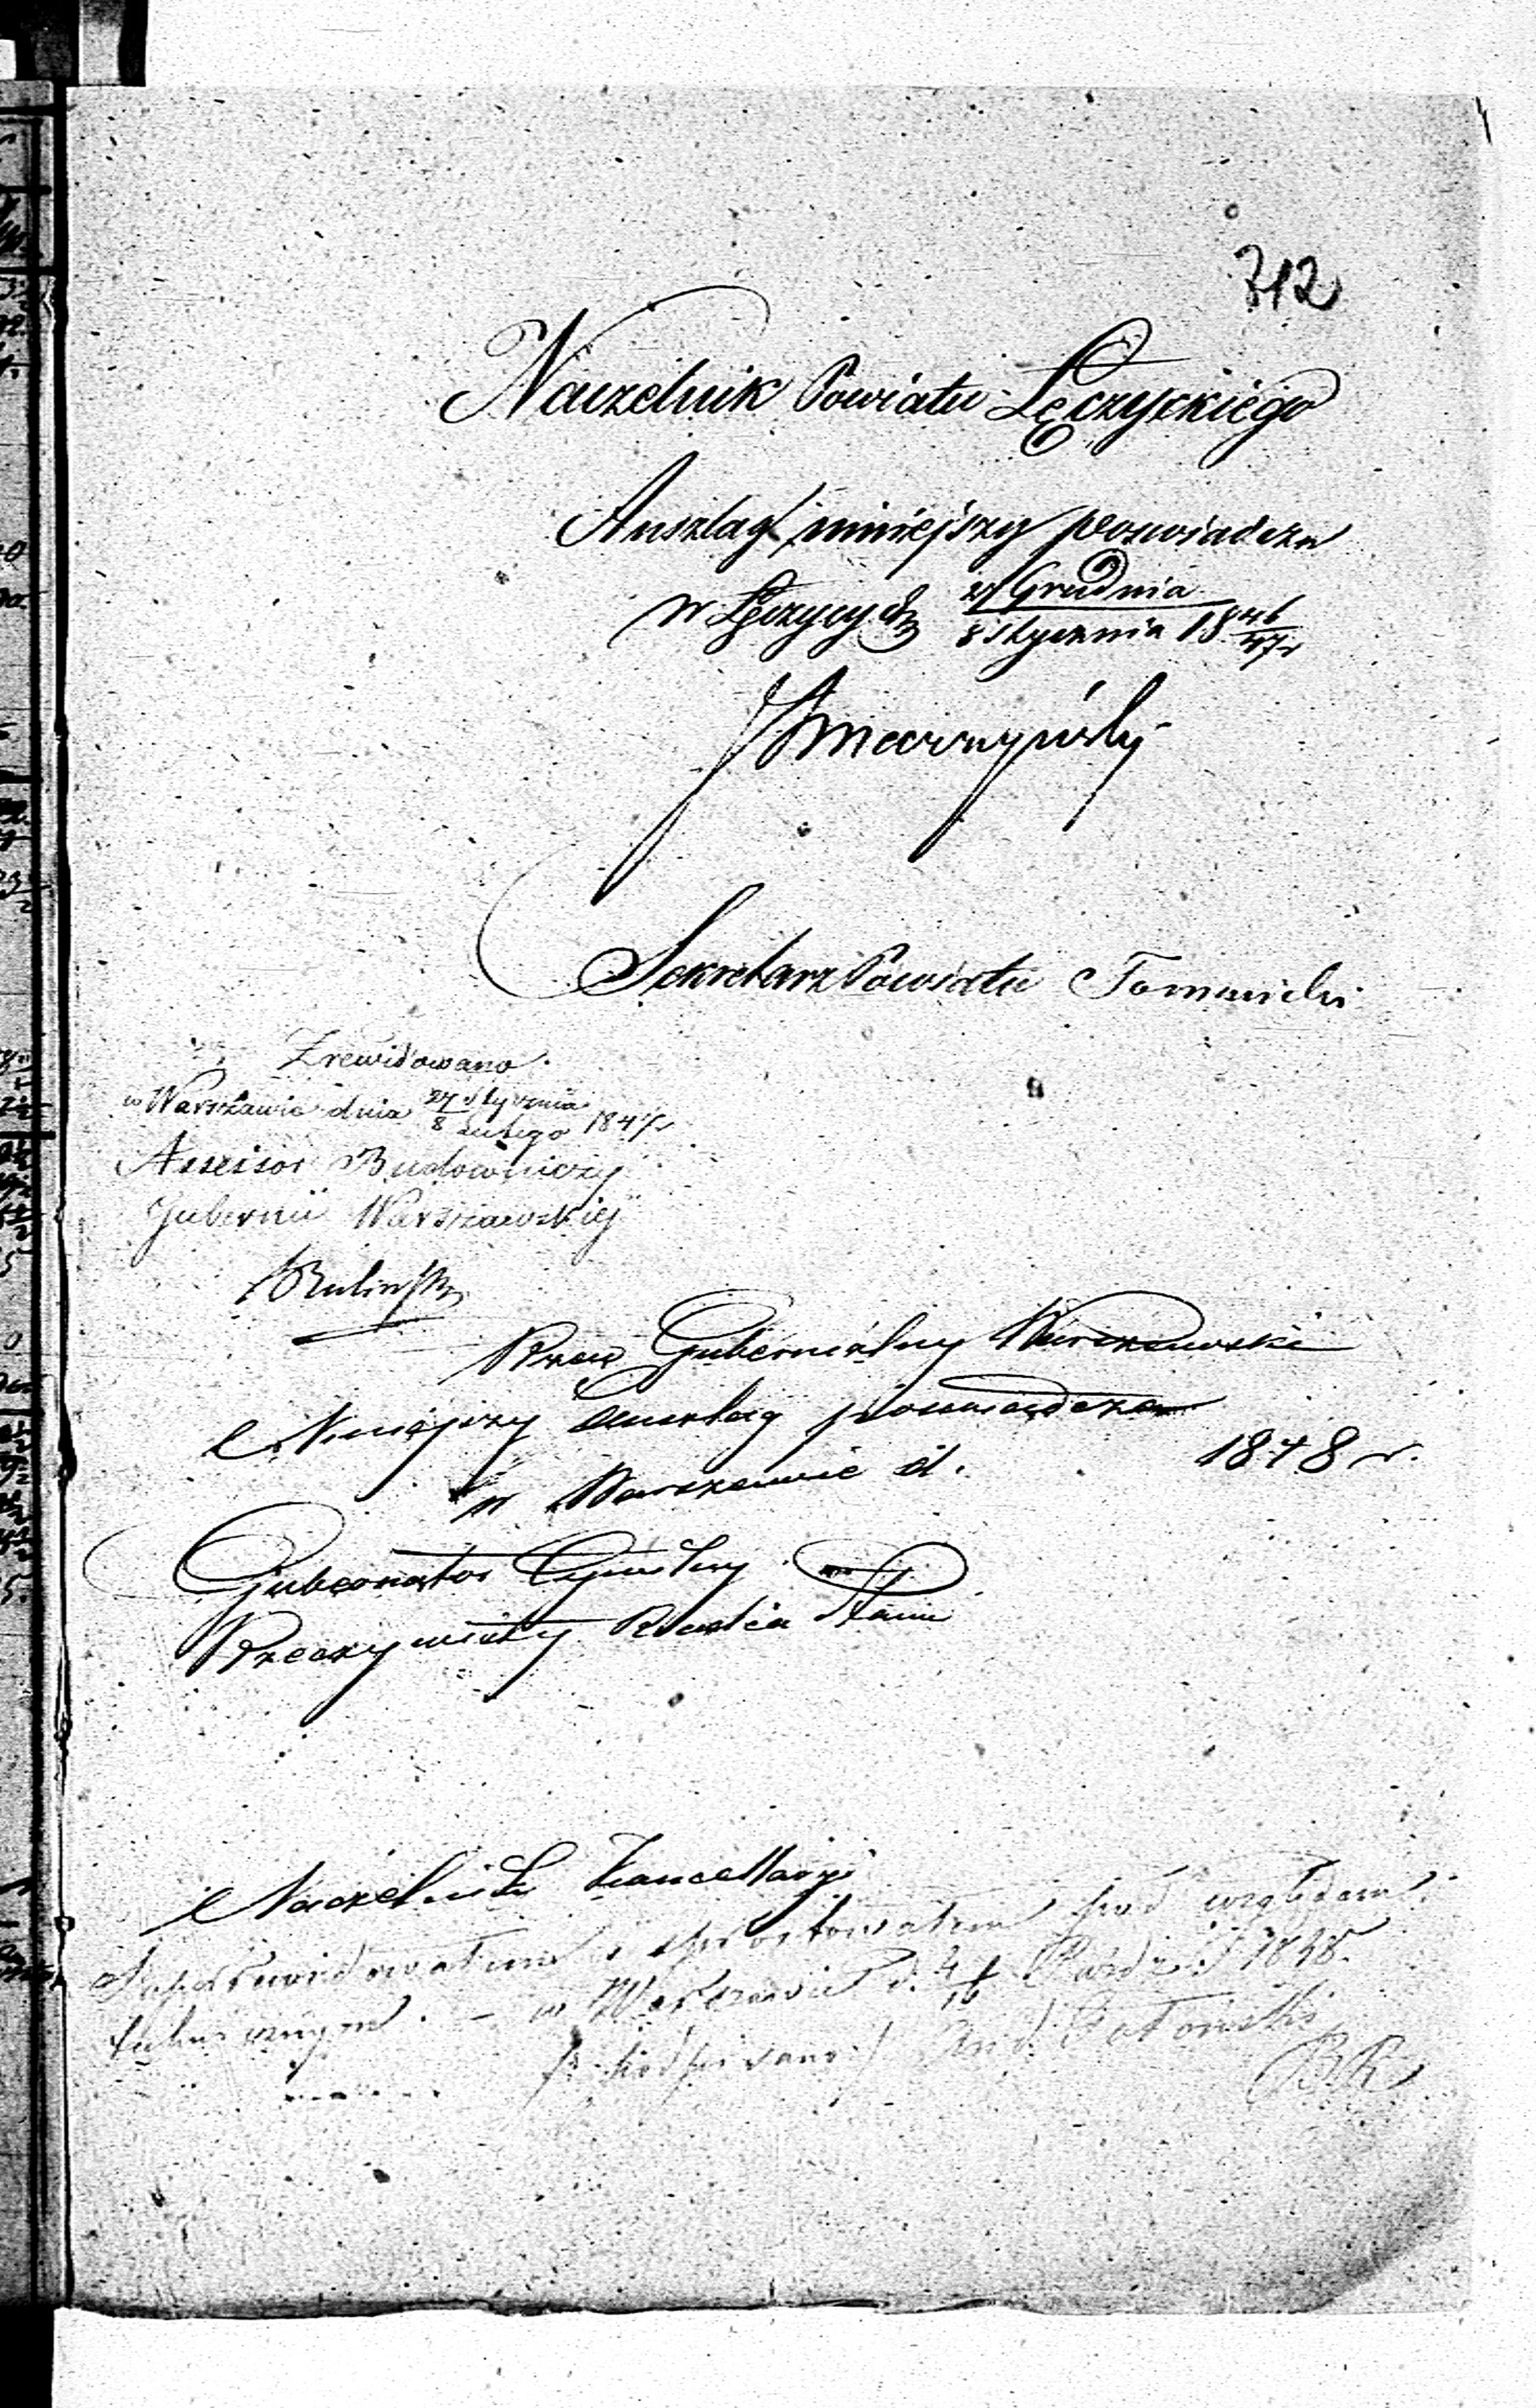 312
Naczelnik Powiatu Łęczyckiego
Anszlag niniejszy poswiadcza
w Łęczycy d. 27 Grudnia / 8 Stycznia 18 46/47 r
Sekretarz Powiatu Tomawski
Zrewidowano
w Warszawie dnia 27 Stycznia / 8 Lutego 1847 r
Assessor Budowniczy
Gubernii Warszawskiej
Rząd Gubernialny Warszawski
Niniejszy Anszlag poswiadcza
w Warszawie d. 1848 r.
Gubernator Cywilny
Rzeczywisty Radca Stanu
Naczelnik Kancellaryi
pod względem
w Warszawie d. 4/16 Paźdz: 1848.
/: podpisano :/ And:
BR